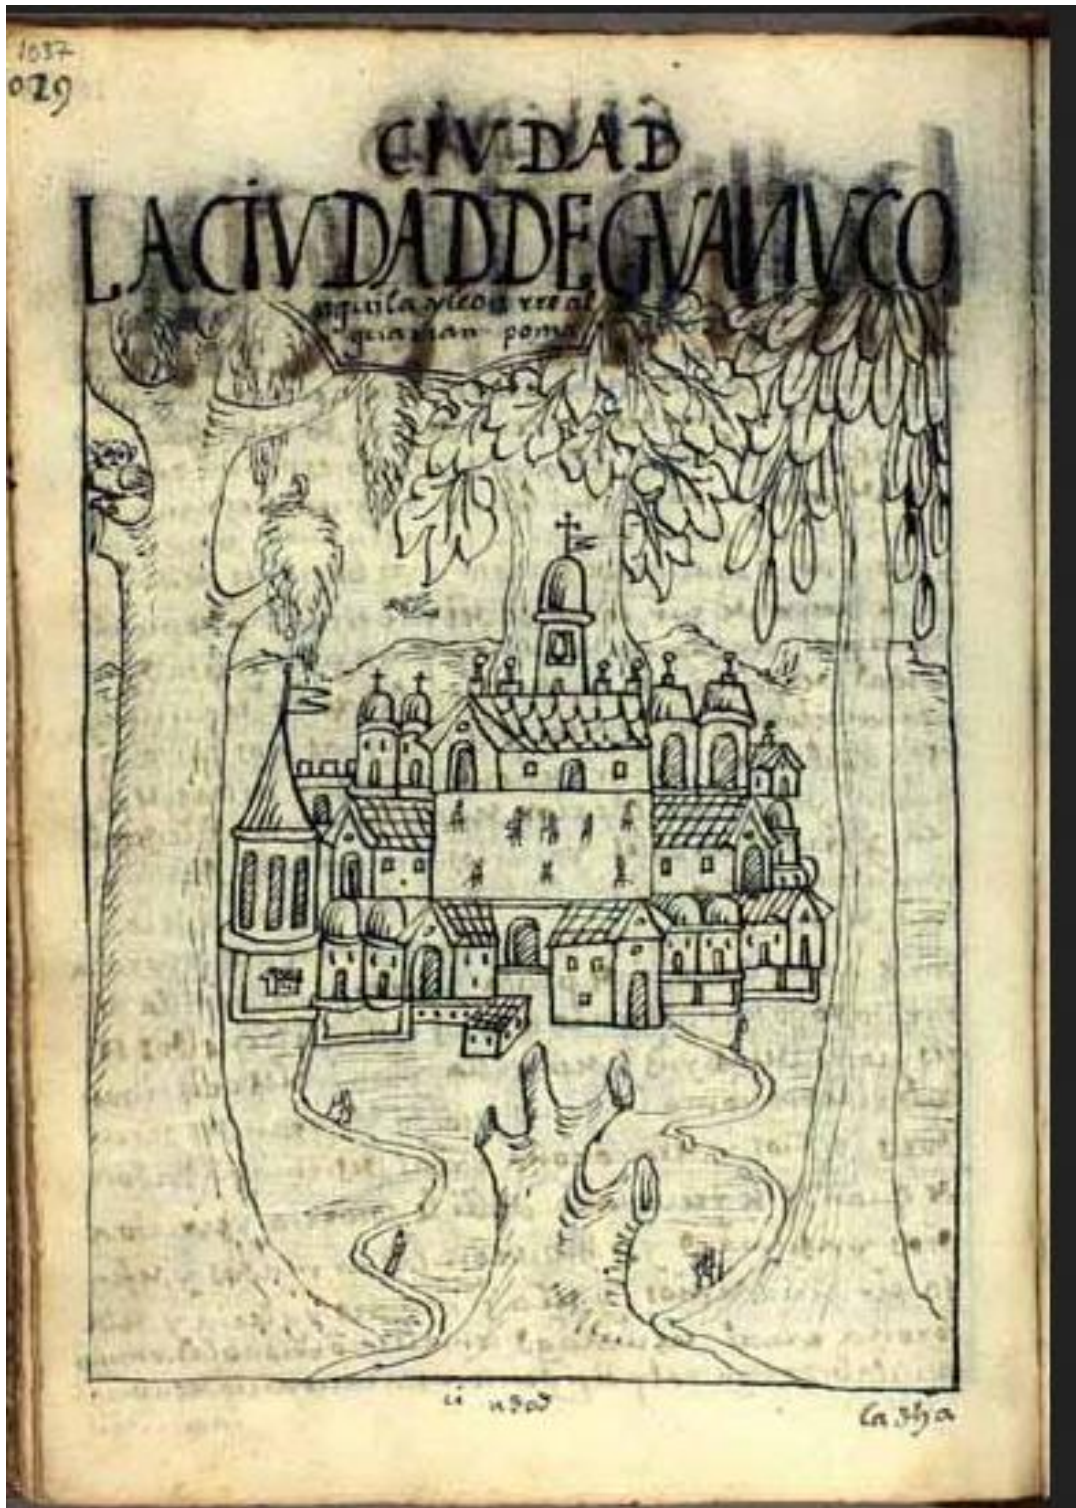 1037
029
CIVDAD
LA CIVDAD DE GVANVCO
aguila y leon rreal
guaman poma
ciudad
la dha